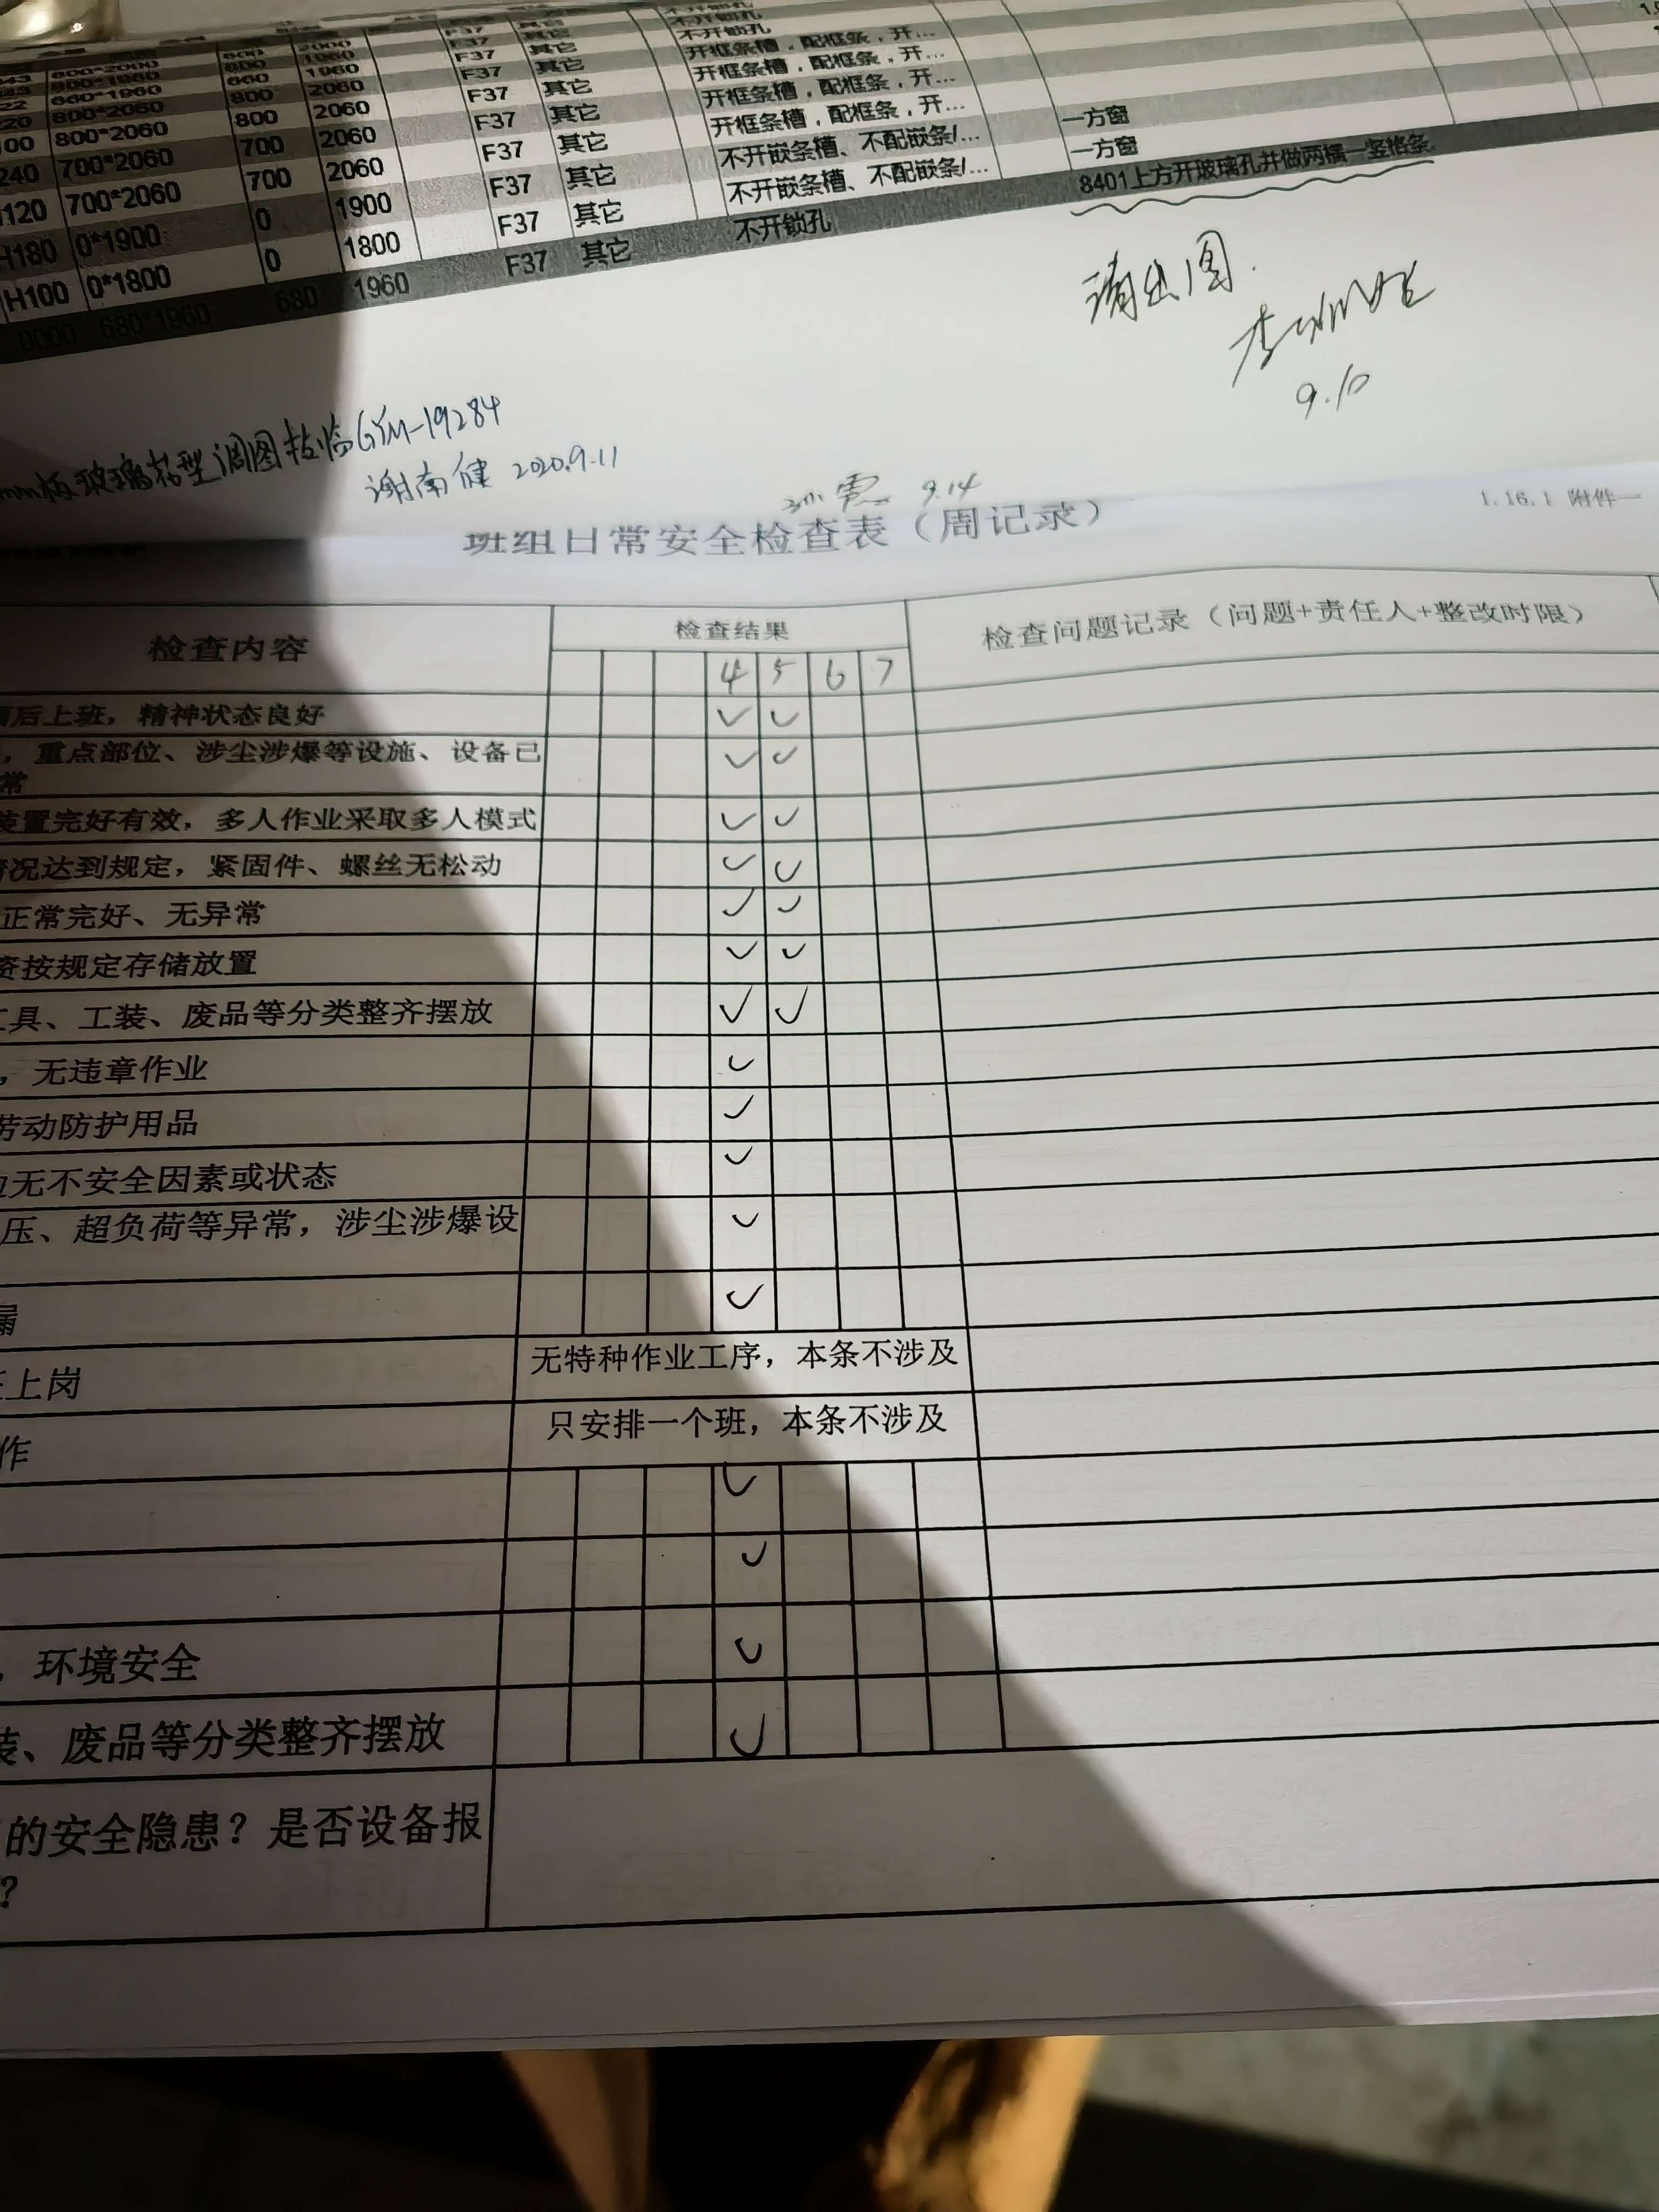 F37 不开锁孔
800*2000 800 2000 F37 其它 不开锁孔
800*1960 800 1960 F37 其它 开框条槽，配框条，开...
22 660*1960 660 1960 F37 其它 开框条槽，配框条，开...
220 800*2060 800 2060 F37 其它 开框条槽，配框条，开...
100 800*2060 800 2060 F37 其它 开框条槽，配框条，开...
240 700*2060 700 2060 F37 其它 不开嵌条槽、不配嵌条/... 一方窗
120 700*2060 700 2060 F37 其它 不开嵌条槽、不配嵌条/... 一方窗
H180 0*1900 0 1900 F37 其它
H100 0*1800 0 1800 F37 其它 不开锁孔 8401上方开玻璃孔并做两横一竖格条
0000 680*1960 680 1960
请出图.
9.10
mm板玻璃芯型调图 GYM-19284
谢南健 2020.9.11
9.14
1.16.1 附件一
班组日常安全检查表（周记录）
检查内容 检查结果 检查问题记录（问题+责任人+整改时限）
4 5 6 7
后上班，精神状态良好 ✓ ✓
，重点部位、涉尘涉爆等设施、设备已 ✓ ✓
常
装置完好有效，多人作业采取多人模式 ✓ ✓
情况达到规定，紧固件、螺丝无松动 ✓ ✓
正常完好、无异常 ✓ ✓
资按规定存储放置 ✓ ✓
工具、工装、废品等分类整齐摆放 ✓ ✓
，无违章作业 ✓
劳动防护用品 ✓
无不安全因素或状态 ✓
压、超负荷等异常，涉尘涉爆设 ✓
漏 ✓
上岗 无特种作业工序，本条不涉及
作 只安排一个班，本条不涉及
✓
✓
，环境安全 ✓
装、废品等分类整齐摆放 ✓
的安全隐患？是否设备报
？